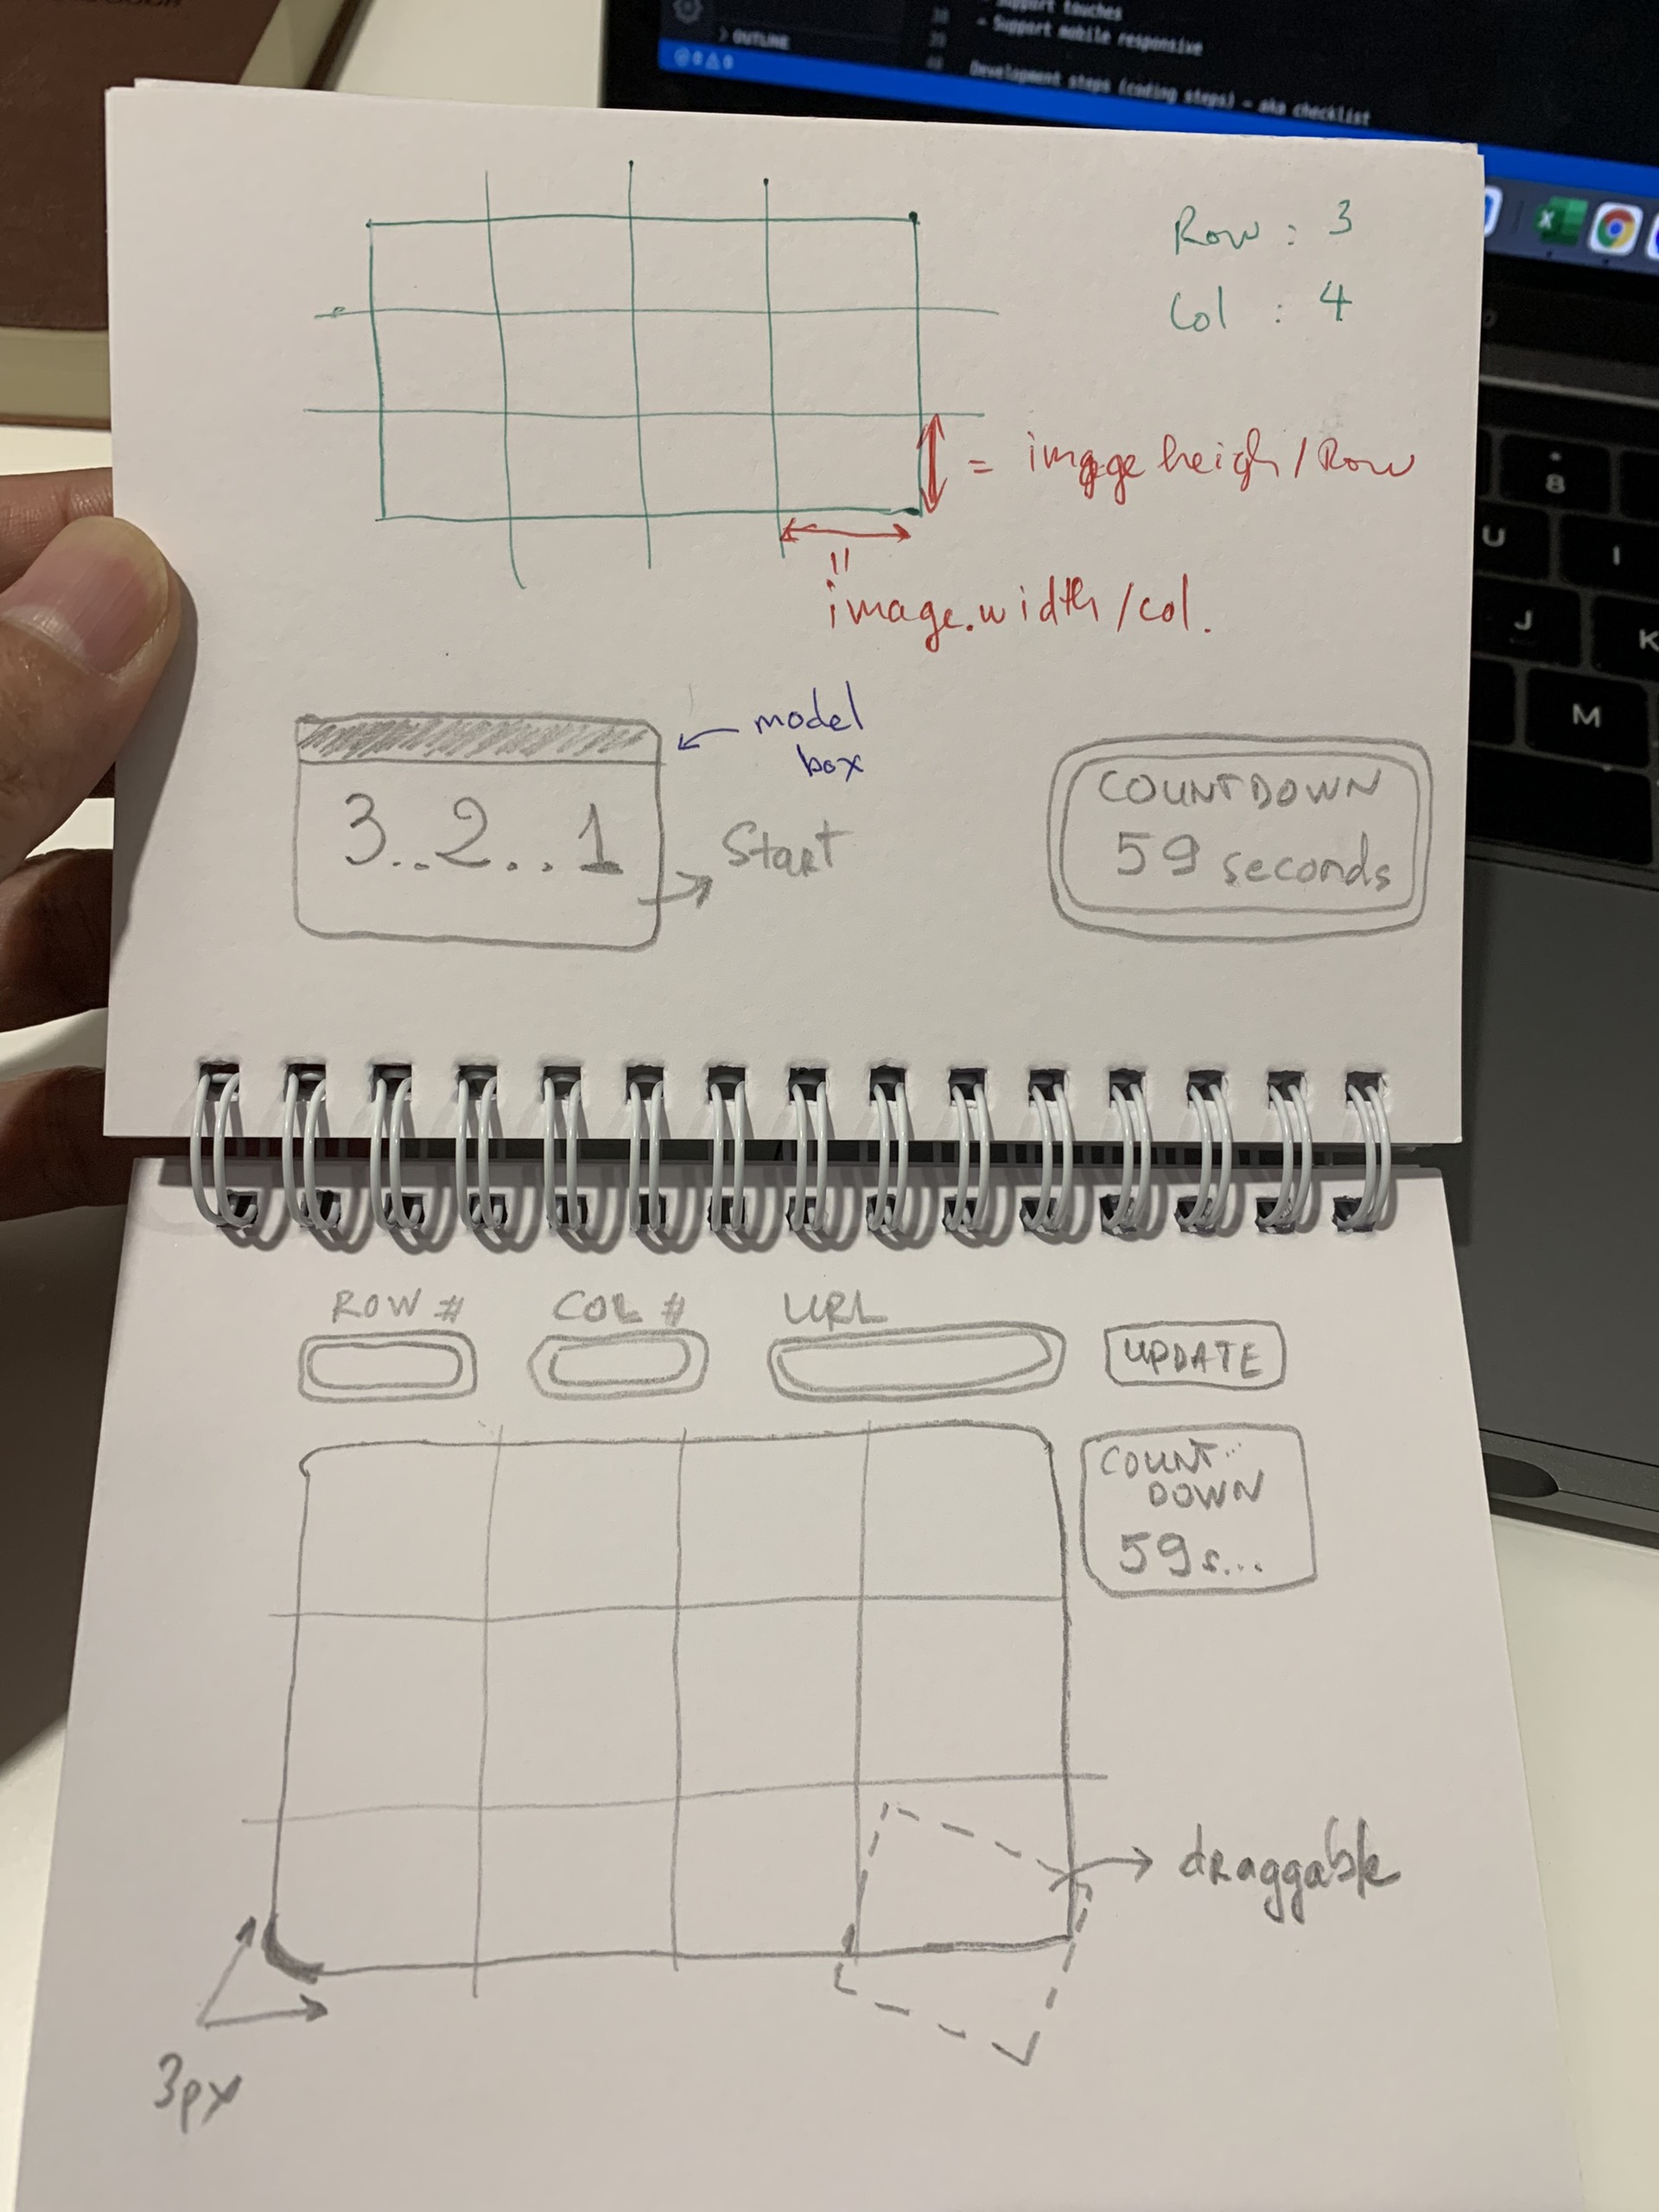 Support touches
- Support mobile responsive
OUTLINE
38
39
40
Development steps (coding steps) - aka checklist
Row : 3
Col : 4
= imagge heigh / Row
"
image.width / col.
model
box
3..2..1
Start
COUNTDOWN
59 seconds
8
U
I
J
K
M
ROW #
COL #
URL
UPDATE
COUNT...
DOWN
59s...
draggable
3px